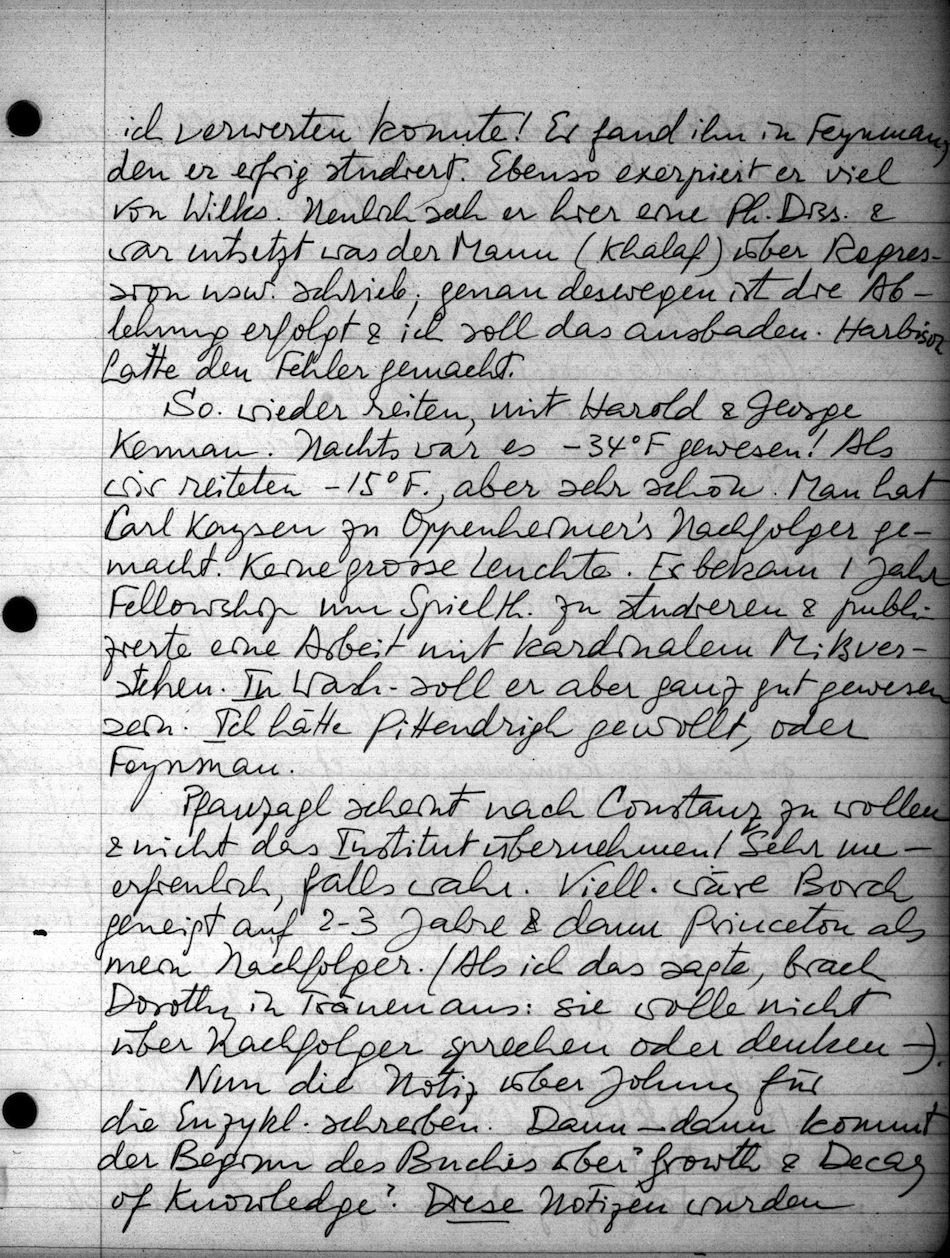 ich verwerten konnte! Er fand ihn in Feynman,
den er eifrig studiert. Ebenso exerpiert er viel
von Wilks. Neulich sah er hier eine Ph. Diss. &
war entsetzt was der Mann (Khalaf) über Regres-
sion usw. schrieb; genau deswegen ist die Ab-
lehnung erfolgt & ich soll das ausbaden. Harbison
hatte den Fehler gemacht.
So. wieder reiten, mit Harold & George
Kennan. Nachts war es -34°F gewesen! Als
wir reiteten -15°F., aber sehr schön. Man hat
Carl Kaysen zu Oppenheimer's Nachfolger ge-
macht. Keine grosse Leuchte. Er bekam 1 Jahr
Fellowship um Spielth. zu studieren & publi-
zierte eine Arbeit mit kardinalem Mißver-
stehen. In Wash. soll er aber ganz gut gewesen
sein. Ich hätte Pittendrigh gewollt, oder
Feynman.
Pfanzagl scheint nach Constanz zu wollen
& nicht das Institut übernehmen! Sehr un-
erfreulich, falls wahr. Viell. wäre Borch
geneigt auf 2-3 Jahre & dann Princeton als
mein Nachfolger. (Als ich das sagte, brach
Dorothy in Tränen aus: sie wolle nicht
über Nachfolger sprechen oder denken –).
Nun die Notiz über Johnny für
die Enzykl. schreiben. Dann – dann kommt
der Beginn des Buches über "Growth & Decay
of Knowledge". Diese Notizen wurden